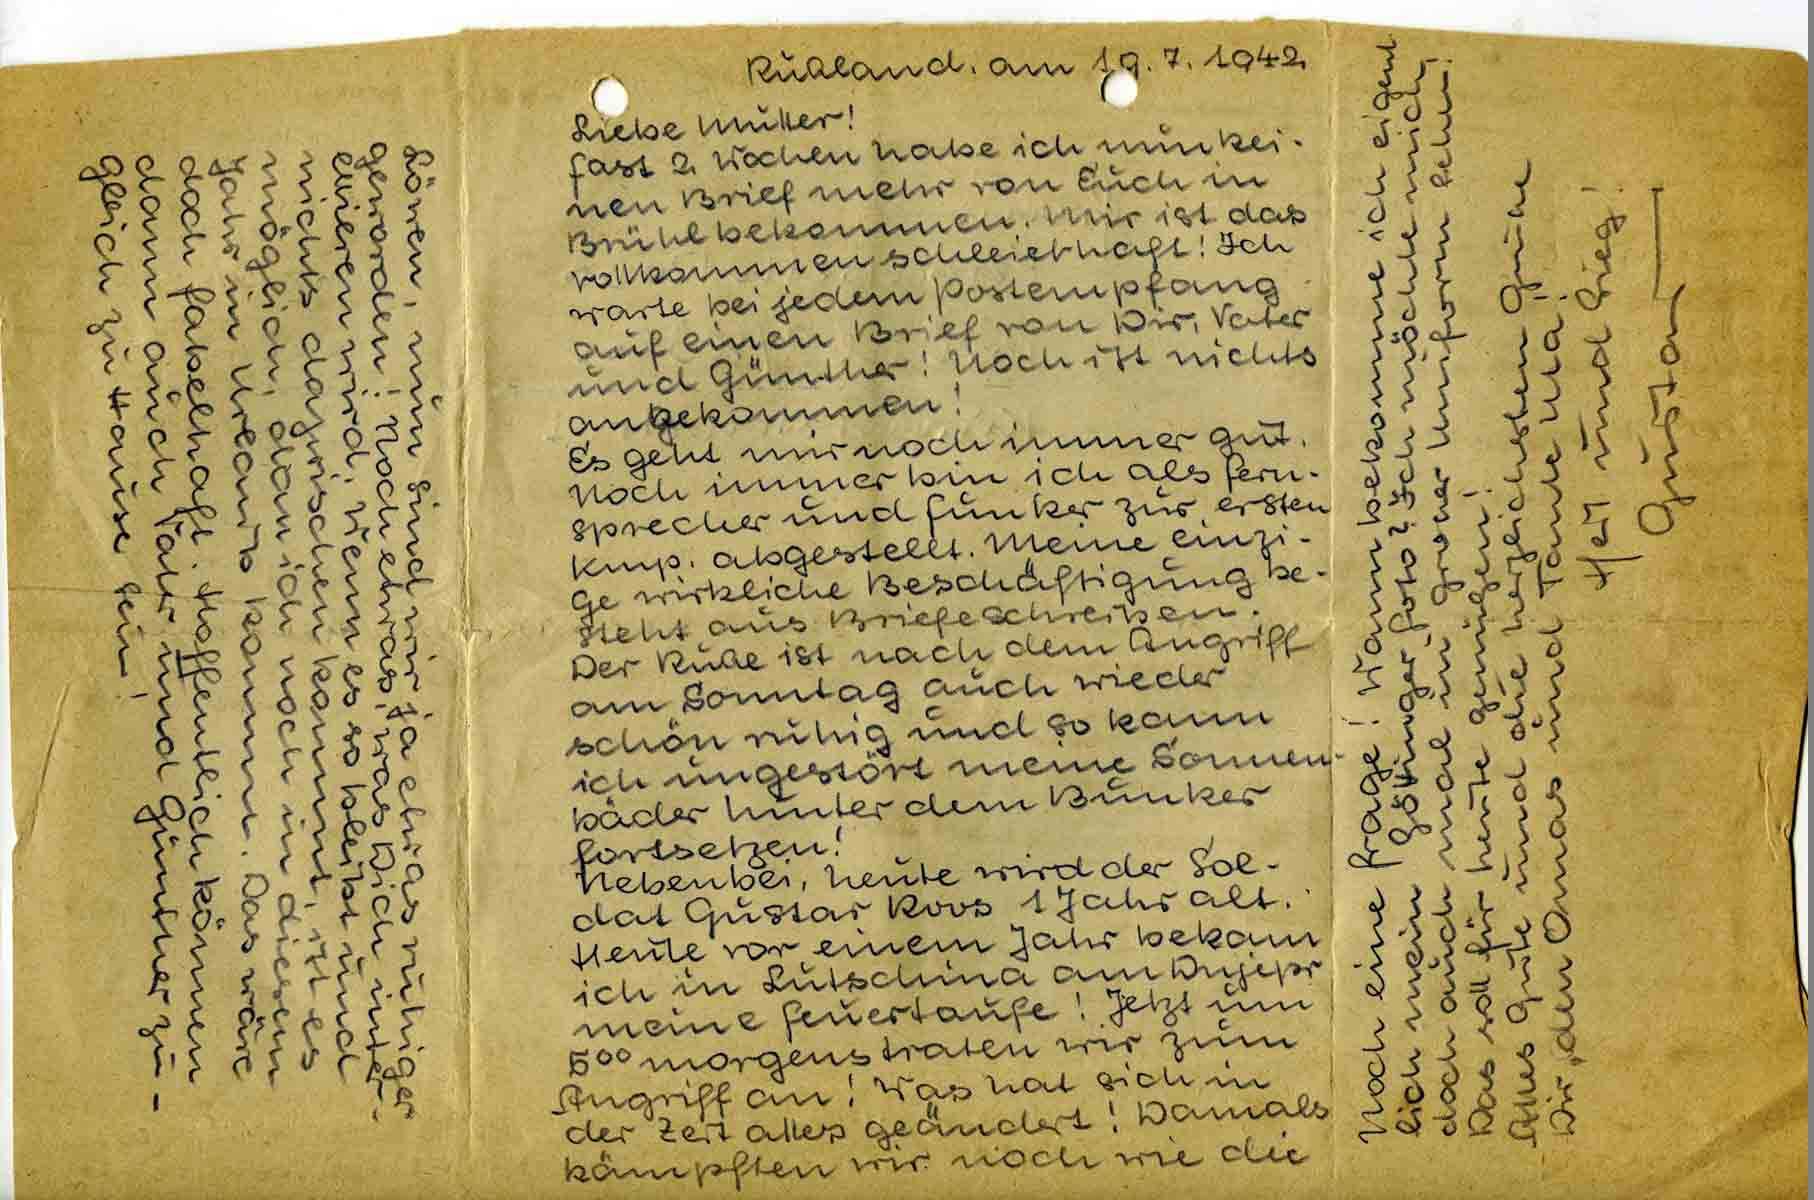 Rußland, am 19.7.1942
Liebe Mutter!
Fast 2 Wochen habe ich nun kei-
nen Brief mehr von Euch in
Brühl bekommen. Mir ist das
vollkommen schleierhaft! Ich
warte bei jedem Postempfang
auf einen Brief von Dir, Vater
und Günther! Noch ist nichts
angekommen!
Es geht mir noch immer gut.
Noch immer bin ich als Fern-
sprecher und Funker zur ersten
Kmp. abgestellt. Meine einzi-
ge wirkliche Beschäftigung be-
steht aus Briefeschreiben.
Der Russe ist nach dem Angriff
am Sonntag auch wieder
schön ruhig und so kann
ich ungestört meine Sonnen-
bäder hinter dem Bunker
fortsetzen!
Nebenbei, heute wird der Sol-
dat Gustav Roos 1 Jahr alt.
Heute vor einem Jahr bekam
ich in Lutschina am Dnjepr
meine Feuertaufe! Jetzt um
5⁰⁰ morgens traten wir zum
Angriff an! Was hat sich in
der Zeit alles geändert! Damals
kämpften wir noch wie die
Löwen, nun sind wir ja etwas ruhiger
geworden! Noch etwas, was Dich inter-
essieren wird. Wenn es so bleibt und
nichts dazwischen kommt, ist es
möglich, dan ich noch in diesem
Jahr in Urlaub komme. Das wäre
doch fabelhaft. Hoffentlich können
dann auch Vater und Günther zu-
gleich zu Hause sein!
Noch eine Frage! Wann bekomme ich eigent
lich mein Göttinger Foto? Ich möchte mich
doch auch mal in grauer Uniform sehn!
Das soll für heute genügen!
Alles Gute und die herzlichsten Grüße
Dir, den Omas und Tante Ma!
Heil und Sieg!
Gustav